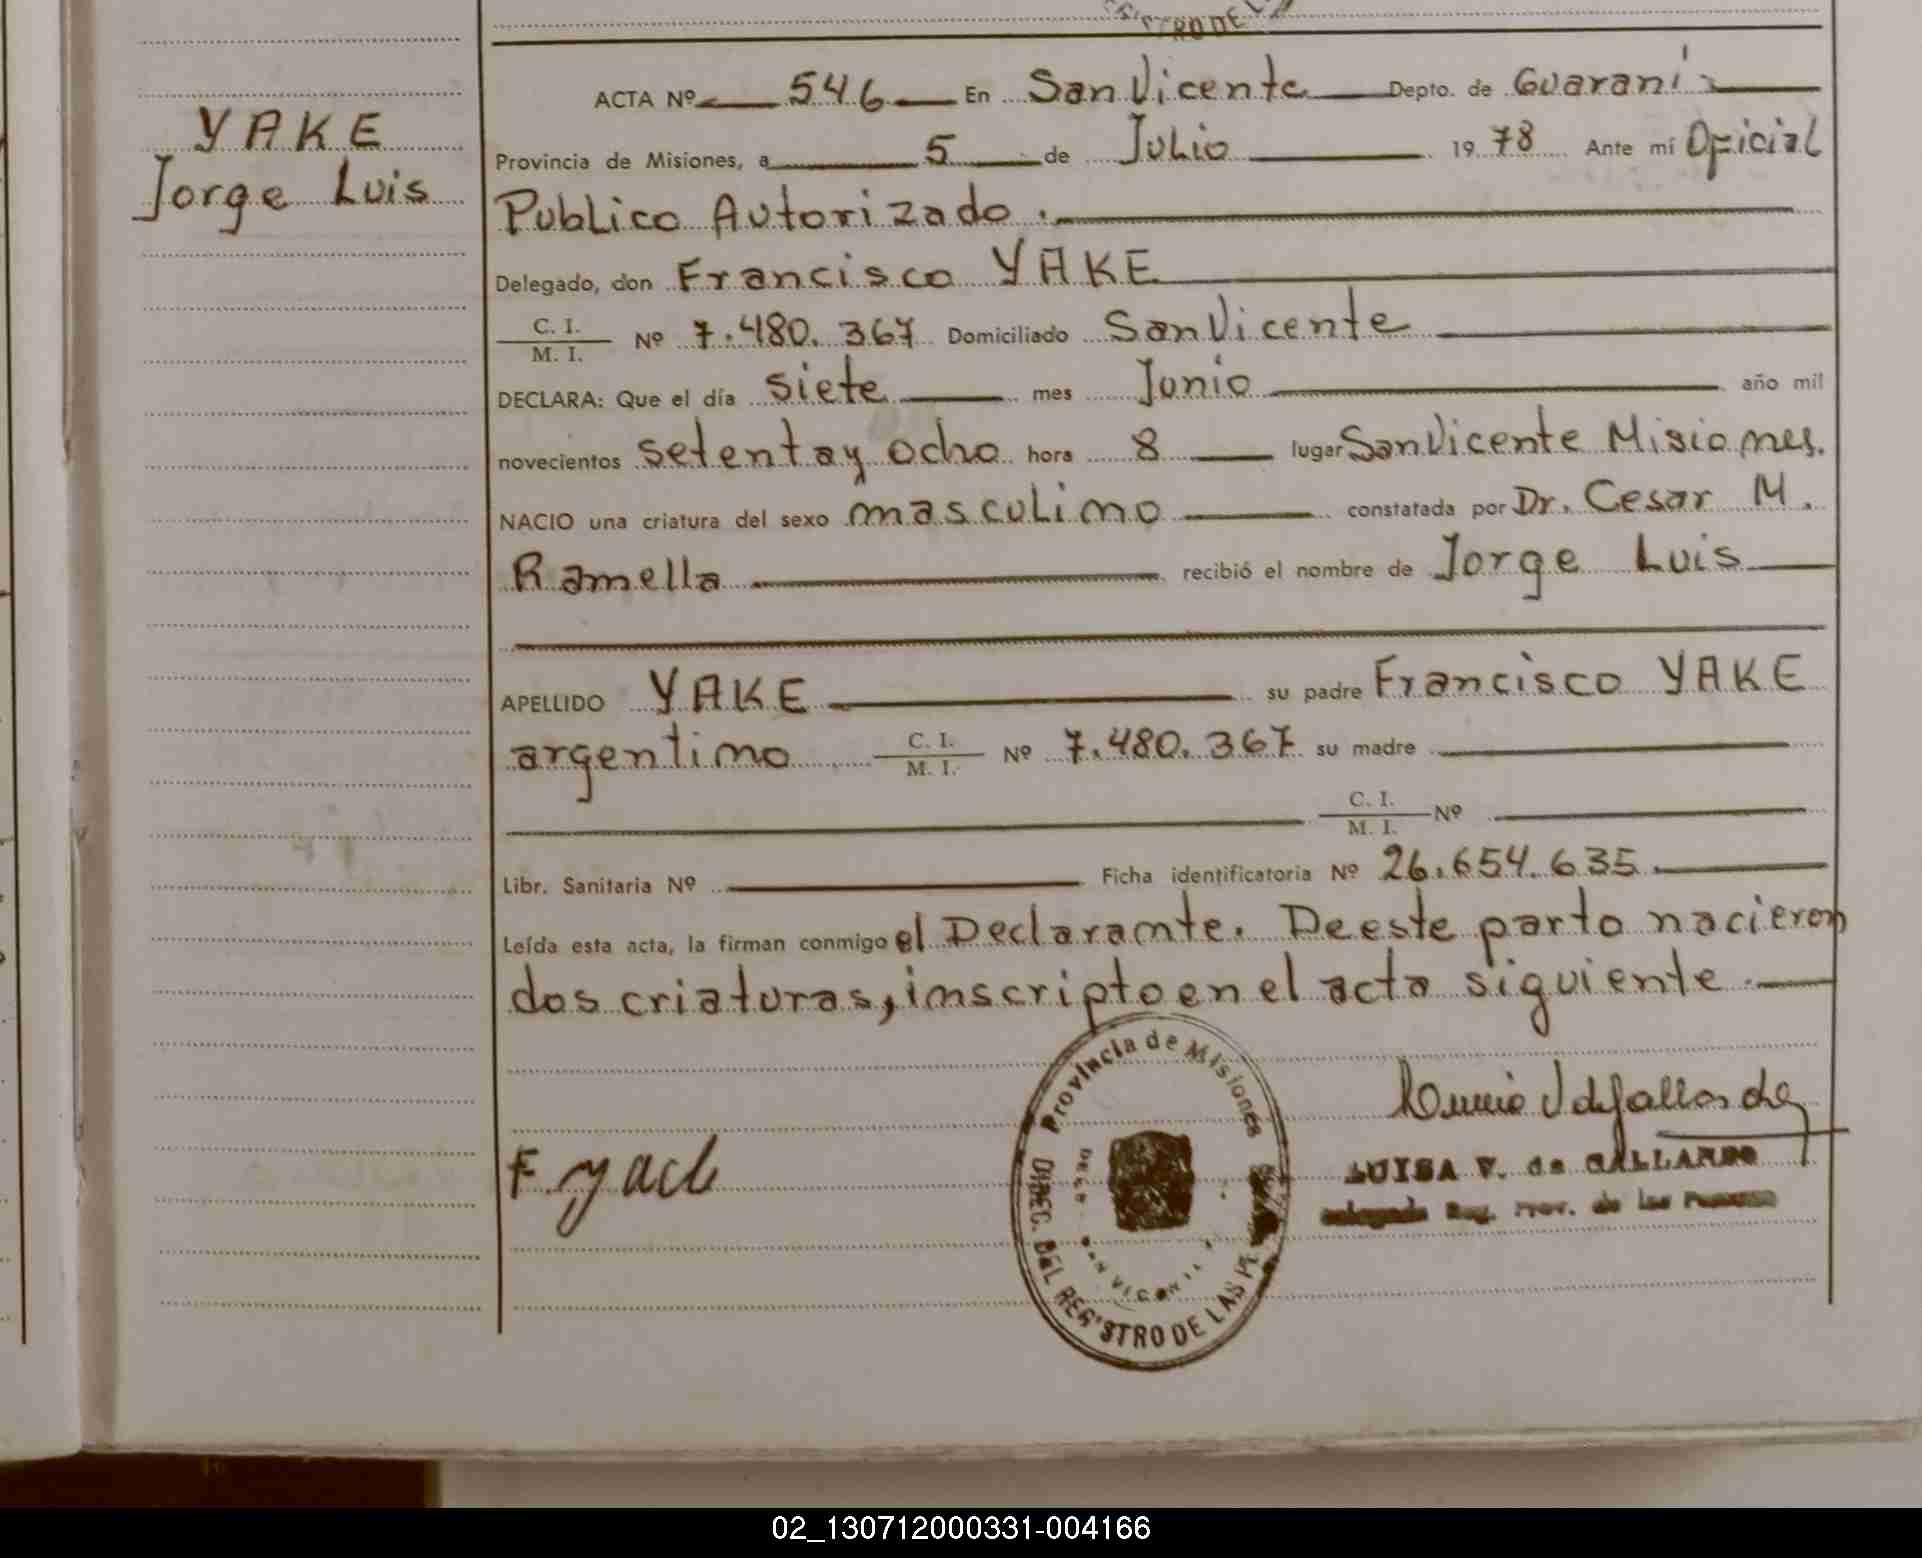 YAKE
Jorge Luis
ACTA Nº 546 En San Vicente Depto. de Guaraní
Provincia de Misiones, a 5 de Julio 19 78 Ante mí Oficial
Publico Autorizado.
Delegado, don Francisco YAKE
C. I. / M. I. Nº 7.480.367 Domiciliado San Vicente
DECLARA: Que el día siete mes Junio año mil
novecientos setenta y ocho hora 8 lugar San Vicente Misiones.
NACIO una criatura del sexo masculino constatada por Dr. Cesar M.
Ramella recibió el nombre de Jorge Luis
APELLIDO YAKE su padre Francisco YAKE
argentino C. I. / M. I. Nº 7.480.367 su madre
C. I. / M. I. Nº
Libr. Sanitaria Nº Ficha identificatoria Nº 26.654.635.
Leída esta acta, la firman conmigo el Declarante. De este parto nacieron
dos criaturas, inscripto en el acta siguiente.
Provincia de Misiones
DIREC. DEL REGISTRO DE LAS PE
F. yack
LUISA V. de GALLARDO
Delegada Reg. Prov. de las Personas
02_130712000331-004166